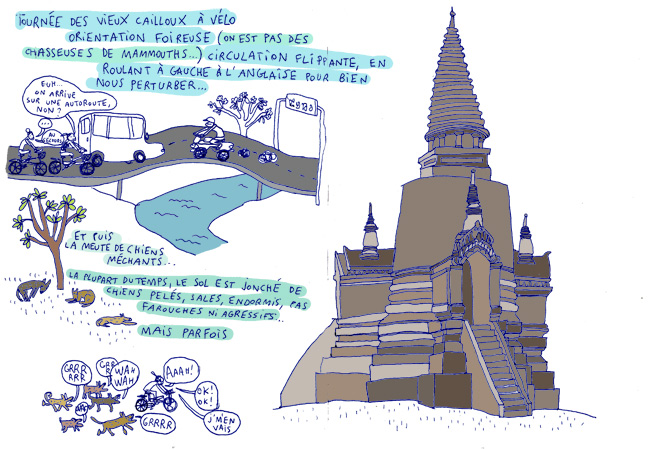 TOURNÉE DES VIEUX CAILLOUX À VÉLO
ORIENTATION FOIREUSE (ON EST PAS DES
CHASSEUSES DE MAMMOUTHS...) CIRCULATION FLIPPANTE, EN
ROULANT À GAUCHE À L'ANGLAISE POUR BIEN
NOUS PERTURBER...
EUH...
ON ARRIVE
SUR UNE AUTOROUTE,
NON?
...
AU
SECOURS
ET PUIS
LA MEUTE DE CHIENS
MÉCHANTS...
LA PLUPART DU TEMPS, LE SOL EST JONCHÉ DE
CHIENS PELÉS, SALES, ENDORMIS, PAS
FAROUCHES NI AGRESSIFS...
MAIS PARFOIS
GRRR
ARR
GRR
WAH
WAH
AAAH!
OK!
OK!
J'M'EN
VAIS
GRRRR